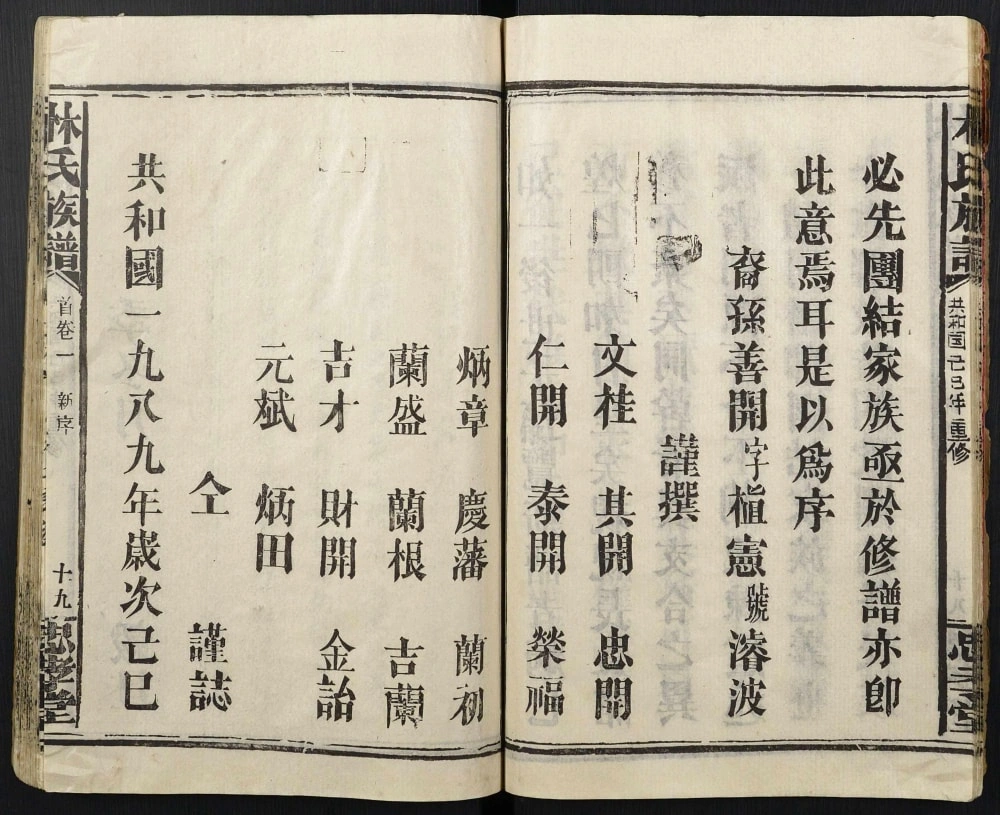 林氏族譜
共和國己巳年重修
必先團結家族亟於修譜亦卽
此意焉耳是以爲序
裔孫善開字植憲號濬波
謹撰
文桂 其開 忠開
仁開 泰開 榮福
炳章 慶藩 蘭初
蘭盛 蘭根 吉蘭
吉才 財開 金詒
元斌 炳田
仝 謹誌
共和國一九八九年歲次己巳
林氏族譜
首卷一 新序
十九
忠孝堂